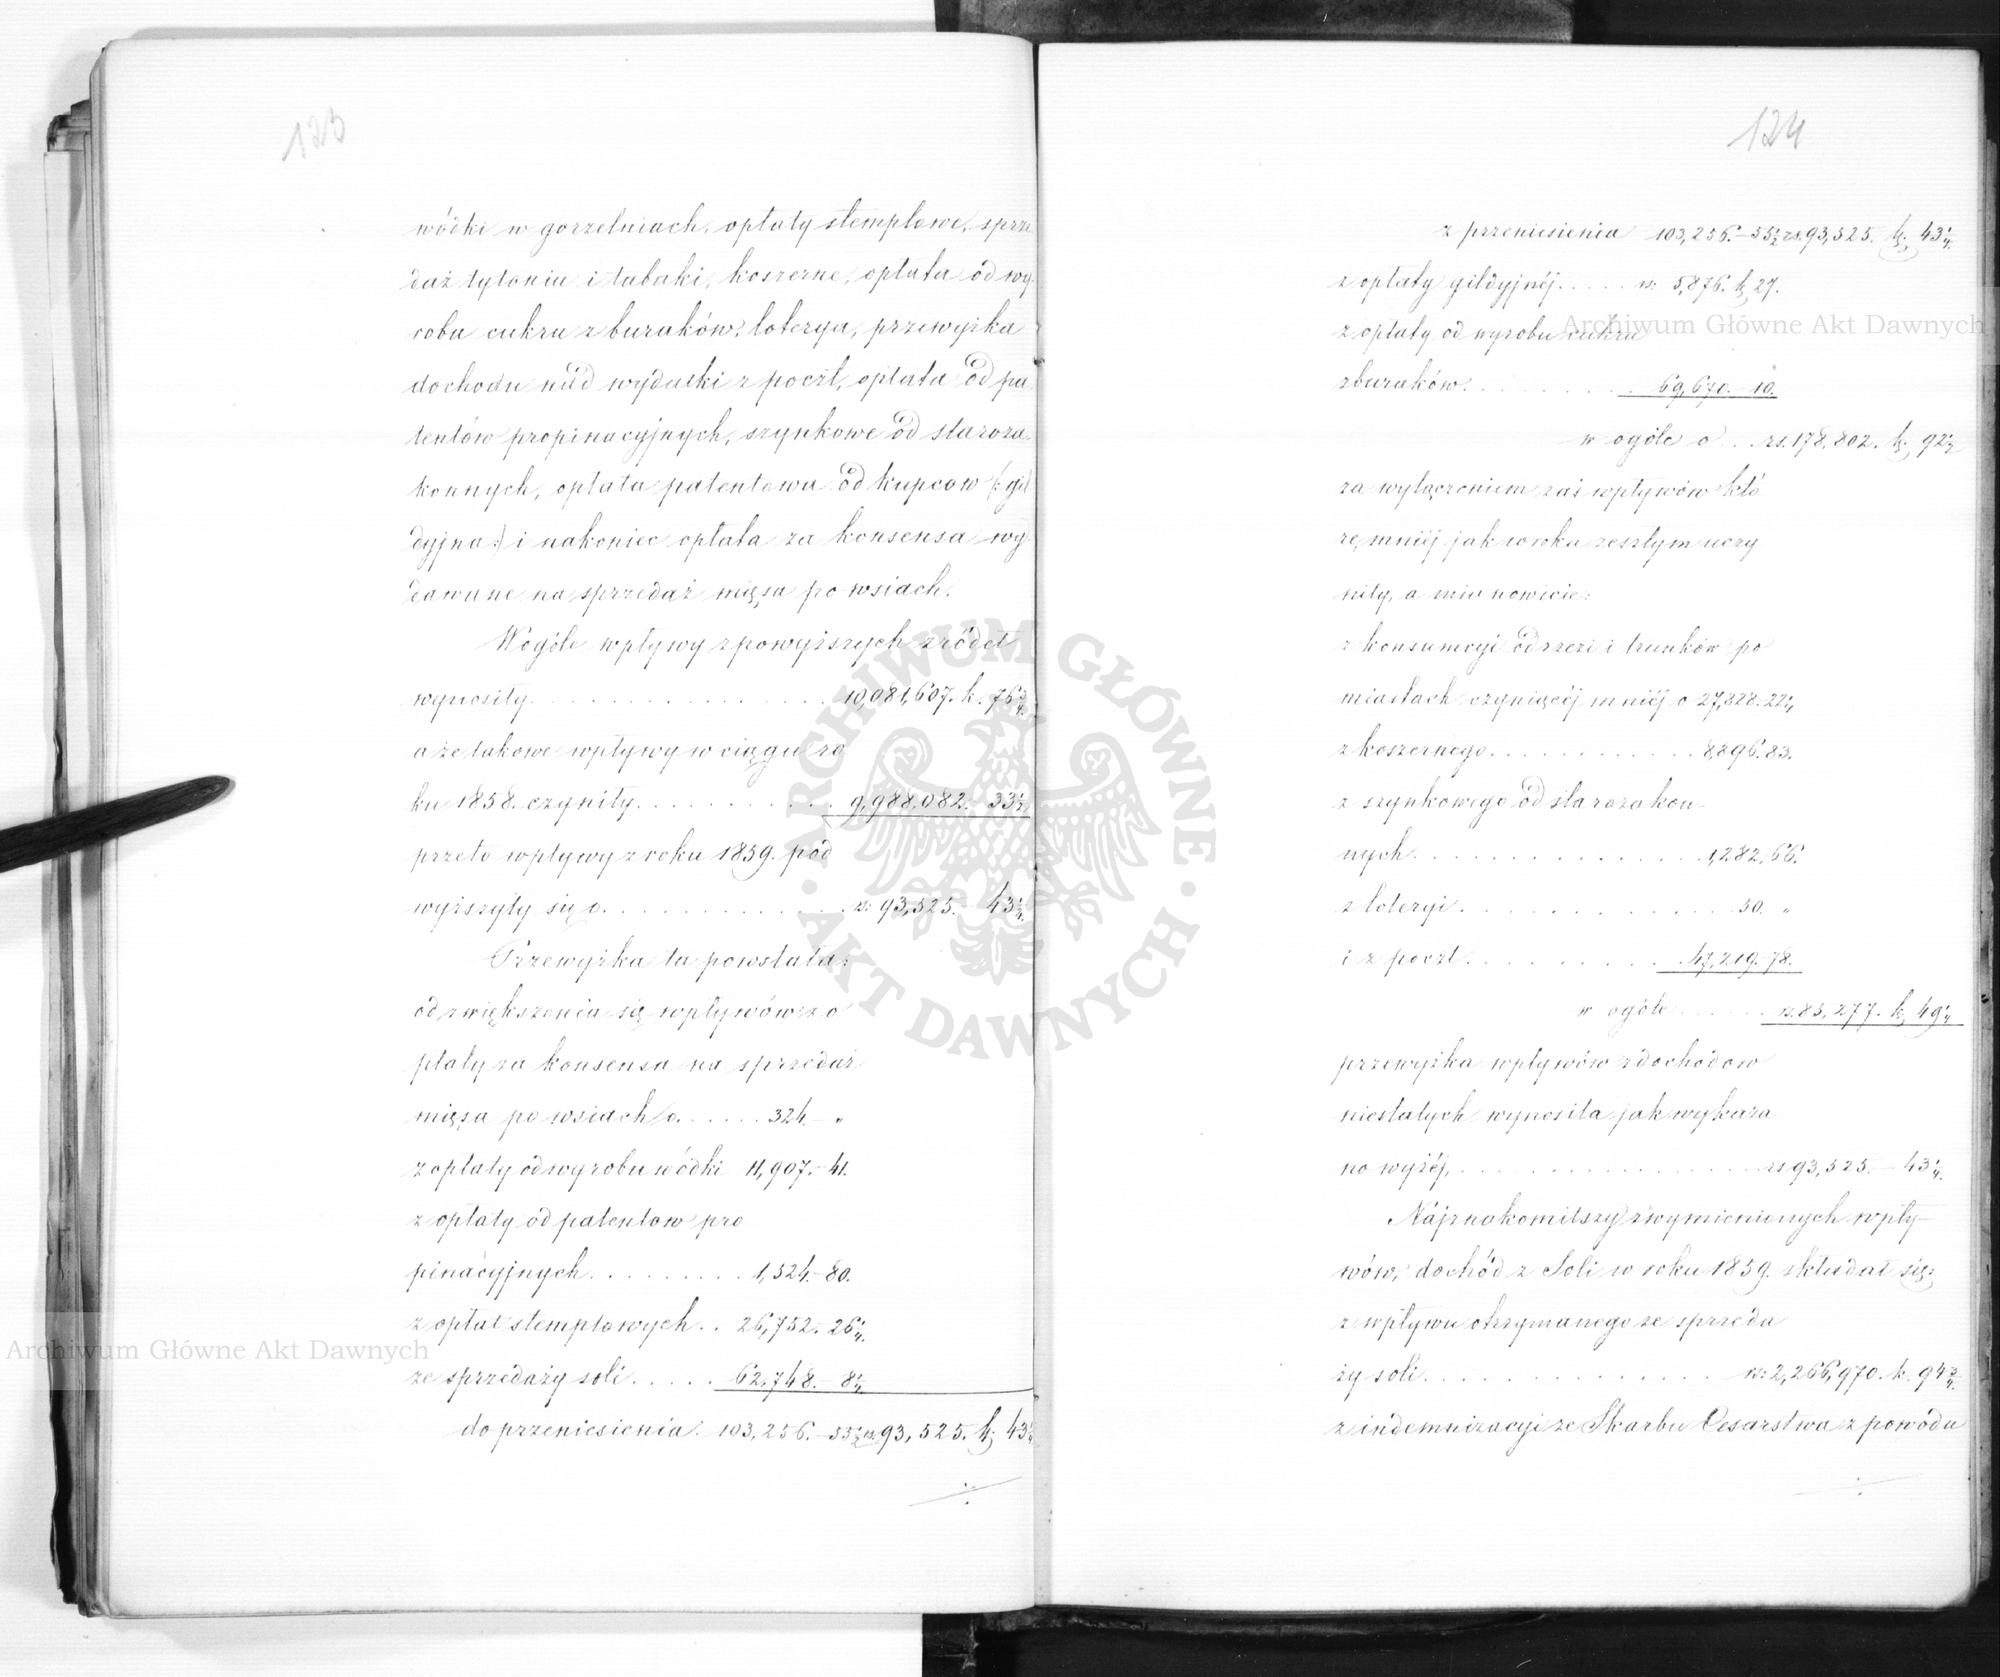 123
wódki w gorzelniach, opłaty stemplowe, sprze
daż tytoniu i tabaki, koszerne, opłata od wy-
robu cukru z buraków, loterya, przewyżka
dochodu nad wydatki z poczt, opłata od pa
tentów propinacyjnych, szynkowe od staroza-
konnych, opłata patentowa od kupcow (: gil
dyjna:) i nakoniec opłata za konsensa wy-
dawane na sprzedaż mięsa po wsiach.
Wogóle wpływy z powyższych źródeł
wynosiły . . . . . 10,081,607. k. 76¾.
a że takowe wpływy w ciągu ro
ku 1858. czyniły . . . . . 9,988,082. 33½
przeto wpływy z roku 1859. pod
wyższyły się o . . . . . rs: 93,525. 43¼.
Przewyżka ta powstała:
od zwiększenia się wpływów z o
płaty za konsensa na sprzedaż
mięsa po wsiach o . . . . . 324. — „
z opłaty od wyrobu wódki 11,907.— 41.
z opłaty od patentow pro
pinacyjnych . . . . . 1,524.— 80.
z opłat stemplowych . . 26,752. 26¼.
ze sprzedaży soli . . . . . 62,748.— 8¼
do przeniesienia. 103,256.— 55½ rs. 93,525. k. 43¼
124
z przeniesienia 103,256.— 55½ rs. 93,525. k. 43¼.
z opłaty gildyjnéj . . . . . rs: 5,876. k. 27.
z opłaty od wyrobu cukru
z buraków . . . . . 69,670.— 10.
w ogóle o . . rs. 178,802. k. 92½
za wyłączeniem zaś wpływów któ
re, mniéj jak w roku zeszłym uczy
niły, a mia nowicie:
z konsumcyi od rzezi i trunków po
miastach czyniącéj mniéj o 27,828. 22¼
z koszernego . . . . . 8,896. 83.
z szynkowego od starozakon-
nych . . . . . 1,282. 66.
z loteryi . . . . . 50. „
i z poczt . . . . . 47,219.— 78.
w ogóle . . . . . rs. 85,277. k. 49¼
przewyżka wpływów z dochodow
niestałych wynosiła jak wykaza
no wyżéj, . . . . . rs 93,525.— 43¼.
Najznakomitszy z wymienionych wpły-
wów, dochód z Soli w roku 1859. składał się:
z wpływu otrzymanego ze sprzeda
ży soli . . . . . rs: 2,266,970. k. 94¾.
z indemnizacyi ze Skarbu Cesarstwa z powodu
ARCHIWUM GŁÓWNE
AKT DAWNYCH
Archiwum Główne Akt Dawnych
Archiwum Główne Akt Dawnych